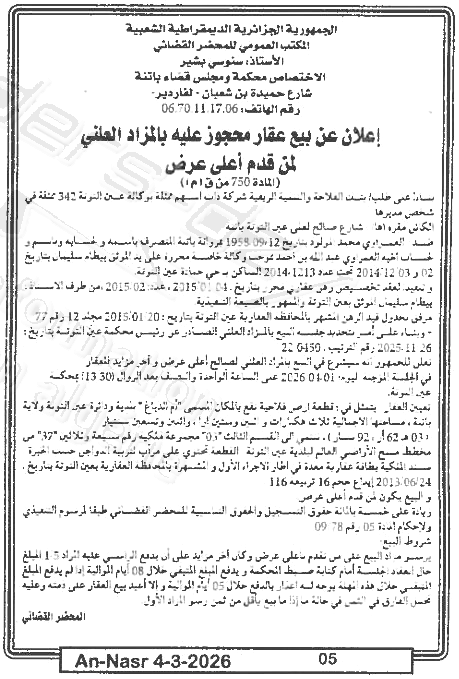 الجمهورية الجزائرية الديمقراطية الشعبية
المكتب العمومي للمحضر القضائي
الأستاذ: سنوسي بشير
الاختصاص محكمة ومجلس قضاء باتنة
شارع حميدة بن شعبان - لفارديز-
رقم الهاتف: 06.70.11.17.06
إعلان عن بيع عقار محجوز عليه بالمزاد العلني
لمن قدم أعلى عرض
(المادة 750 من ق إ م إ)
على طلب/ بنك الفلاحة والتنمية الريفية شركة ذات أسهم ممثلة بوكالة عين التوتة 342 ممثلة في
شخص مديرها
الكائن مقره شارع صالح لعلى عين التوتة باتنة
ضد العمراوي محمد المولود بتاريخ 1958/09/12 بمروانة باتنة المتصرف باسمه ولحسابه وباسم و
لحساب أخيه العمروي عبد الله بن أحمد بموجب وكالة خاصة محررة على يد الموثق بيطام سليمان بتاريخ
02 و 03-12-2014 تحت عدد 1213-2014 الساكن بحي حمادة عين التوتة.
وتمهيد لعقد تخصيص رهن عقاري محرر بتاريخ 04-01-2015، عدد: 02-2015، من طرف الاستاذ:
بيطام سليمان الموثق بعين التوتة والممهور بالصيغة التنفيذية
مرفق بجدول قيد الرهن المشهر بالمحافظة العقارية عين التوتة بتاريخ: 20-01-2015 مجلد 12 رقم 77
- وبناء على أمر بتحديد جلسة البيع بالمزاد العلني الصادر عن رئيس محكمة عين التوتة بتاريخ:
26-11-2025 رقم الترتيب: 22.0450
نعلن للجمهور أنه سيشرع في البيع بالمزاد العلني لصالح أعلى عرض وآخر مزايد للعقار
في الجلسة المبرمجة ليوم: 01-04-2026 على الساعة الواحدة والنصف بعد الزوال (13:30) بمحكمة
عين التوتة.
تعيين العقار يتمثل في: قطعة ارض فلاحية تقع بالمكان المسمى "أم الدباغ" بلدية ودائرة عين التوتة ولاية
باتنة، مساحتها الاجمالية ثلاث هكتارات و اثنين وستين أرا، واثنين وتسعين سنتيار
(03 هـ 62 أر، 92 سار)، تنتمي إلى القسم الثالث "03" مجموعة ملكية رقم سبعة وثلاثين "37" من
مخطط مسح الأراضي العام لبلدية عين التوتة القطعة تحتوي على مرآب لتربية الدواجن حسب الخبرة
سند الملكية بطاقة عقارية معدة في اطار الاجراء الأول و المشهرة بالمحافظة العقارية بعين التوتة بتاريخ .
2013/06/24 إيداع حجم 16 تربيعة 116
و البيع يكون لمن قدم أعلى عرض
زيادة على خمسة بالمائة حقوق التسجيل والحقوق التناسبية للمحضر القضائي طبقا للمرسوم التنفيذي
ولأحكام المادة 05 رقم 09.78
شروط البيع:
يرسو مزاد البيع على من تقدم بأعلى عرض وكان آخر مزايد على أن يدفع الراسي عليه المزاد 1-5 المبلغ
حال انعقاد الجلسة أمام كتابة ضبط المحكمة و يدفع المبلغ المتبقي خلال 08 أيام الموالية إذا لم يدفع المبلغ
المتبقي خلال هذه المهلة يوجه له اعذار بالدفع خلال 05 أيام الموالية و إلا أعيد بيع العقار على ذمته وعليه
تحمل الفارق في الثمن في حالة ما إذا ما بيع بأقل من ثمن رسو المزاد الأول
المحضر القضائي
An-Nasr 4-3-2026 05